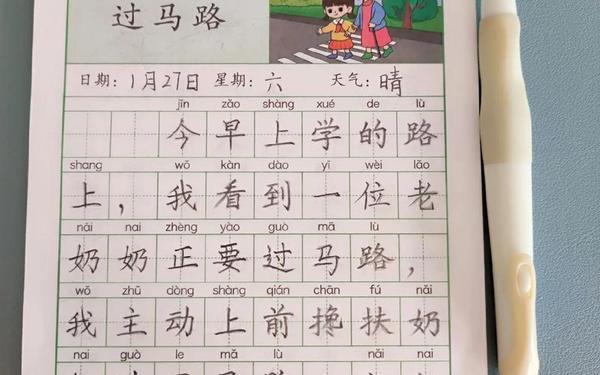 过马路
日期：1月27日 星期：六 天气：晴
jīn zǎo shàng xué de lù
今早上学的路
shang wǒ kàn dào yī wèi lǎo
上，我看到一位老
nǎi nai zhèng yào guò mǎ lù
奶奶正要过马路，
wǒ zhǔ dòng shàng qián chān fú nǎi
我主动上前搀扶奶
nai guò le mǎ lù nǎi nai